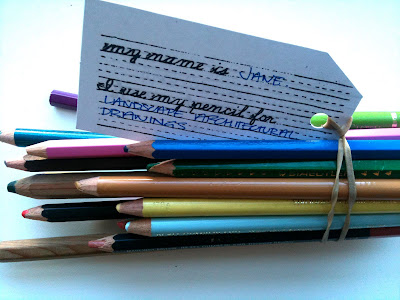 my name is JANE
I use my pencil for
LANDSCAPE ARCHITECTURAL
DRAWINGS